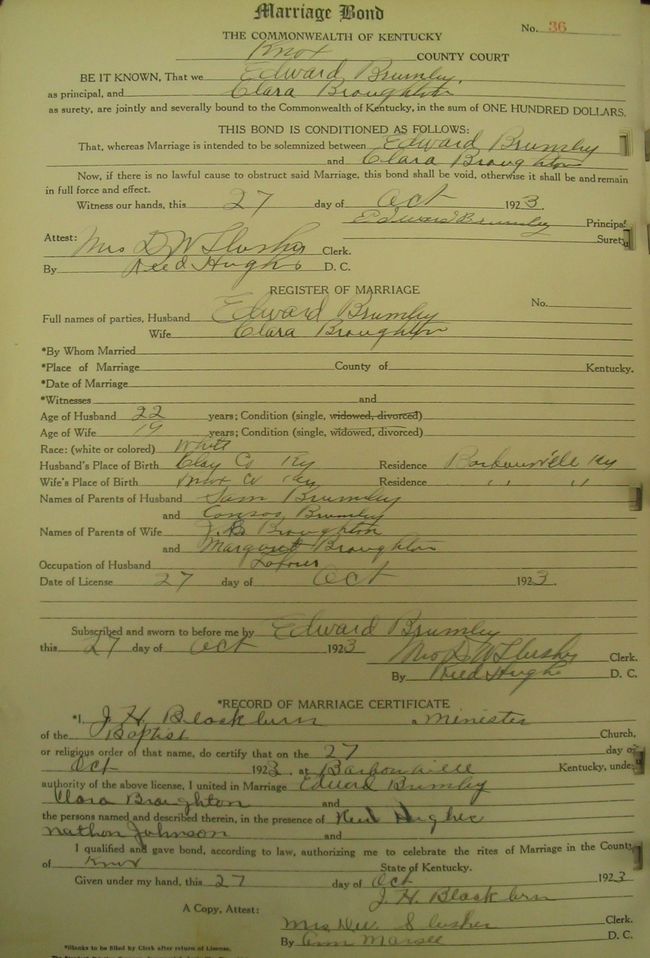 Marriage Bond
No. 36
THE COMMONWEALTH OF KENTUCKY
Knox COUNTY COURT
BE IT KNOWN, That we Edward Brumley,
as principal, and Clara Broughton
as surety, are jointly and severally bound to the Commonwealth of Kentucky, in the sum of ONE HUNDRED DOLLARS.
THIS BOND IS CONDITIONED AS FOLLOWS:
That, whereas Marriage is intended to be solemnized between Edward Brumley
and Clara Broughton
Now, if there is no lawful cause to obstruct said Marriage, this bond shall be void, otherwise it shall be and remain
in full force and effect.
Witness our hands, this 27 day of Oct 1923.
Edward Brumley Principal
Surety
Attest: Mrs D W Slusher Clerk.
By Reed Hughs D. C.
REGISTER OF MARRIAGE
No.
Full names of parties, Husband Edward Brumley
Wife Clara Broughton
*By Whom Married
*Place of Marriage County of Kentucky.
*Date of Marriage
*Witnesses and
Age of Husband 22 years; Condition (single, widowed, divorced)
Age of Wife 19 years; Condition (single, widowed, divorced)
Race: (white or colored) White
Husband's Place of Birth Clay Co Ky Residence Barbourville Ky
Wife's Place of Birth Knox Co Ky Residence " "
Names of Parents of Husband Sam Brumley
and Brumley
Names of Parents of Wife J. B Broughton
and Margaret Broughton
Occupation of Husband Laborer
Date of License 27 day of Oct 1923.
Subscribed and sworn to before me by Edward Brumley
this 27 day of Oct 1923
Mrs D W Slusher Clerk.
By Reed Hughs D. C.
*RECORD OF MARRIAGE CERTIFICATE
*I, J. H. Blackburn a Minister
of the Baptist Church,
or religious order of that name, do certify that on the 27 day of
Oct 1923, at Barbourville Kentucky, under
authority of the above license, I united in Marriage Edward Brumley
Clara Broughton and
the persons named and described therein, in the presence of Reed Hughes
Nathan Johnson and
I qualified and gave bond, according to law, authorizing me to celebrate the rites of Marriage in the County
of Knox State of Kentucky.
Given under my hand, this 27 day of Oct 1923
J. H. Blackburn
A Copy, Attest:
Mrs. D.W. Slusher Clerk.
By Ann Marsee D. C.
*Blanks to be filled by Clerk after return of License.